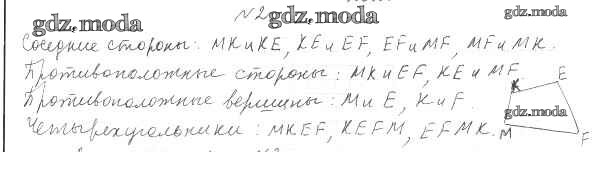 №2
gdz.moda gdz.moda gdz.moda
Соседние стороны: MK и KE, KE и EF, EF и MF, MF и MK.
Противоположные стороны: MK и EF, KE и MF
Противоположные вершины: M и E, K и F.
Четырехугольники: MKEF, KEFM, EFMK.
K E
gdz.moda
M F